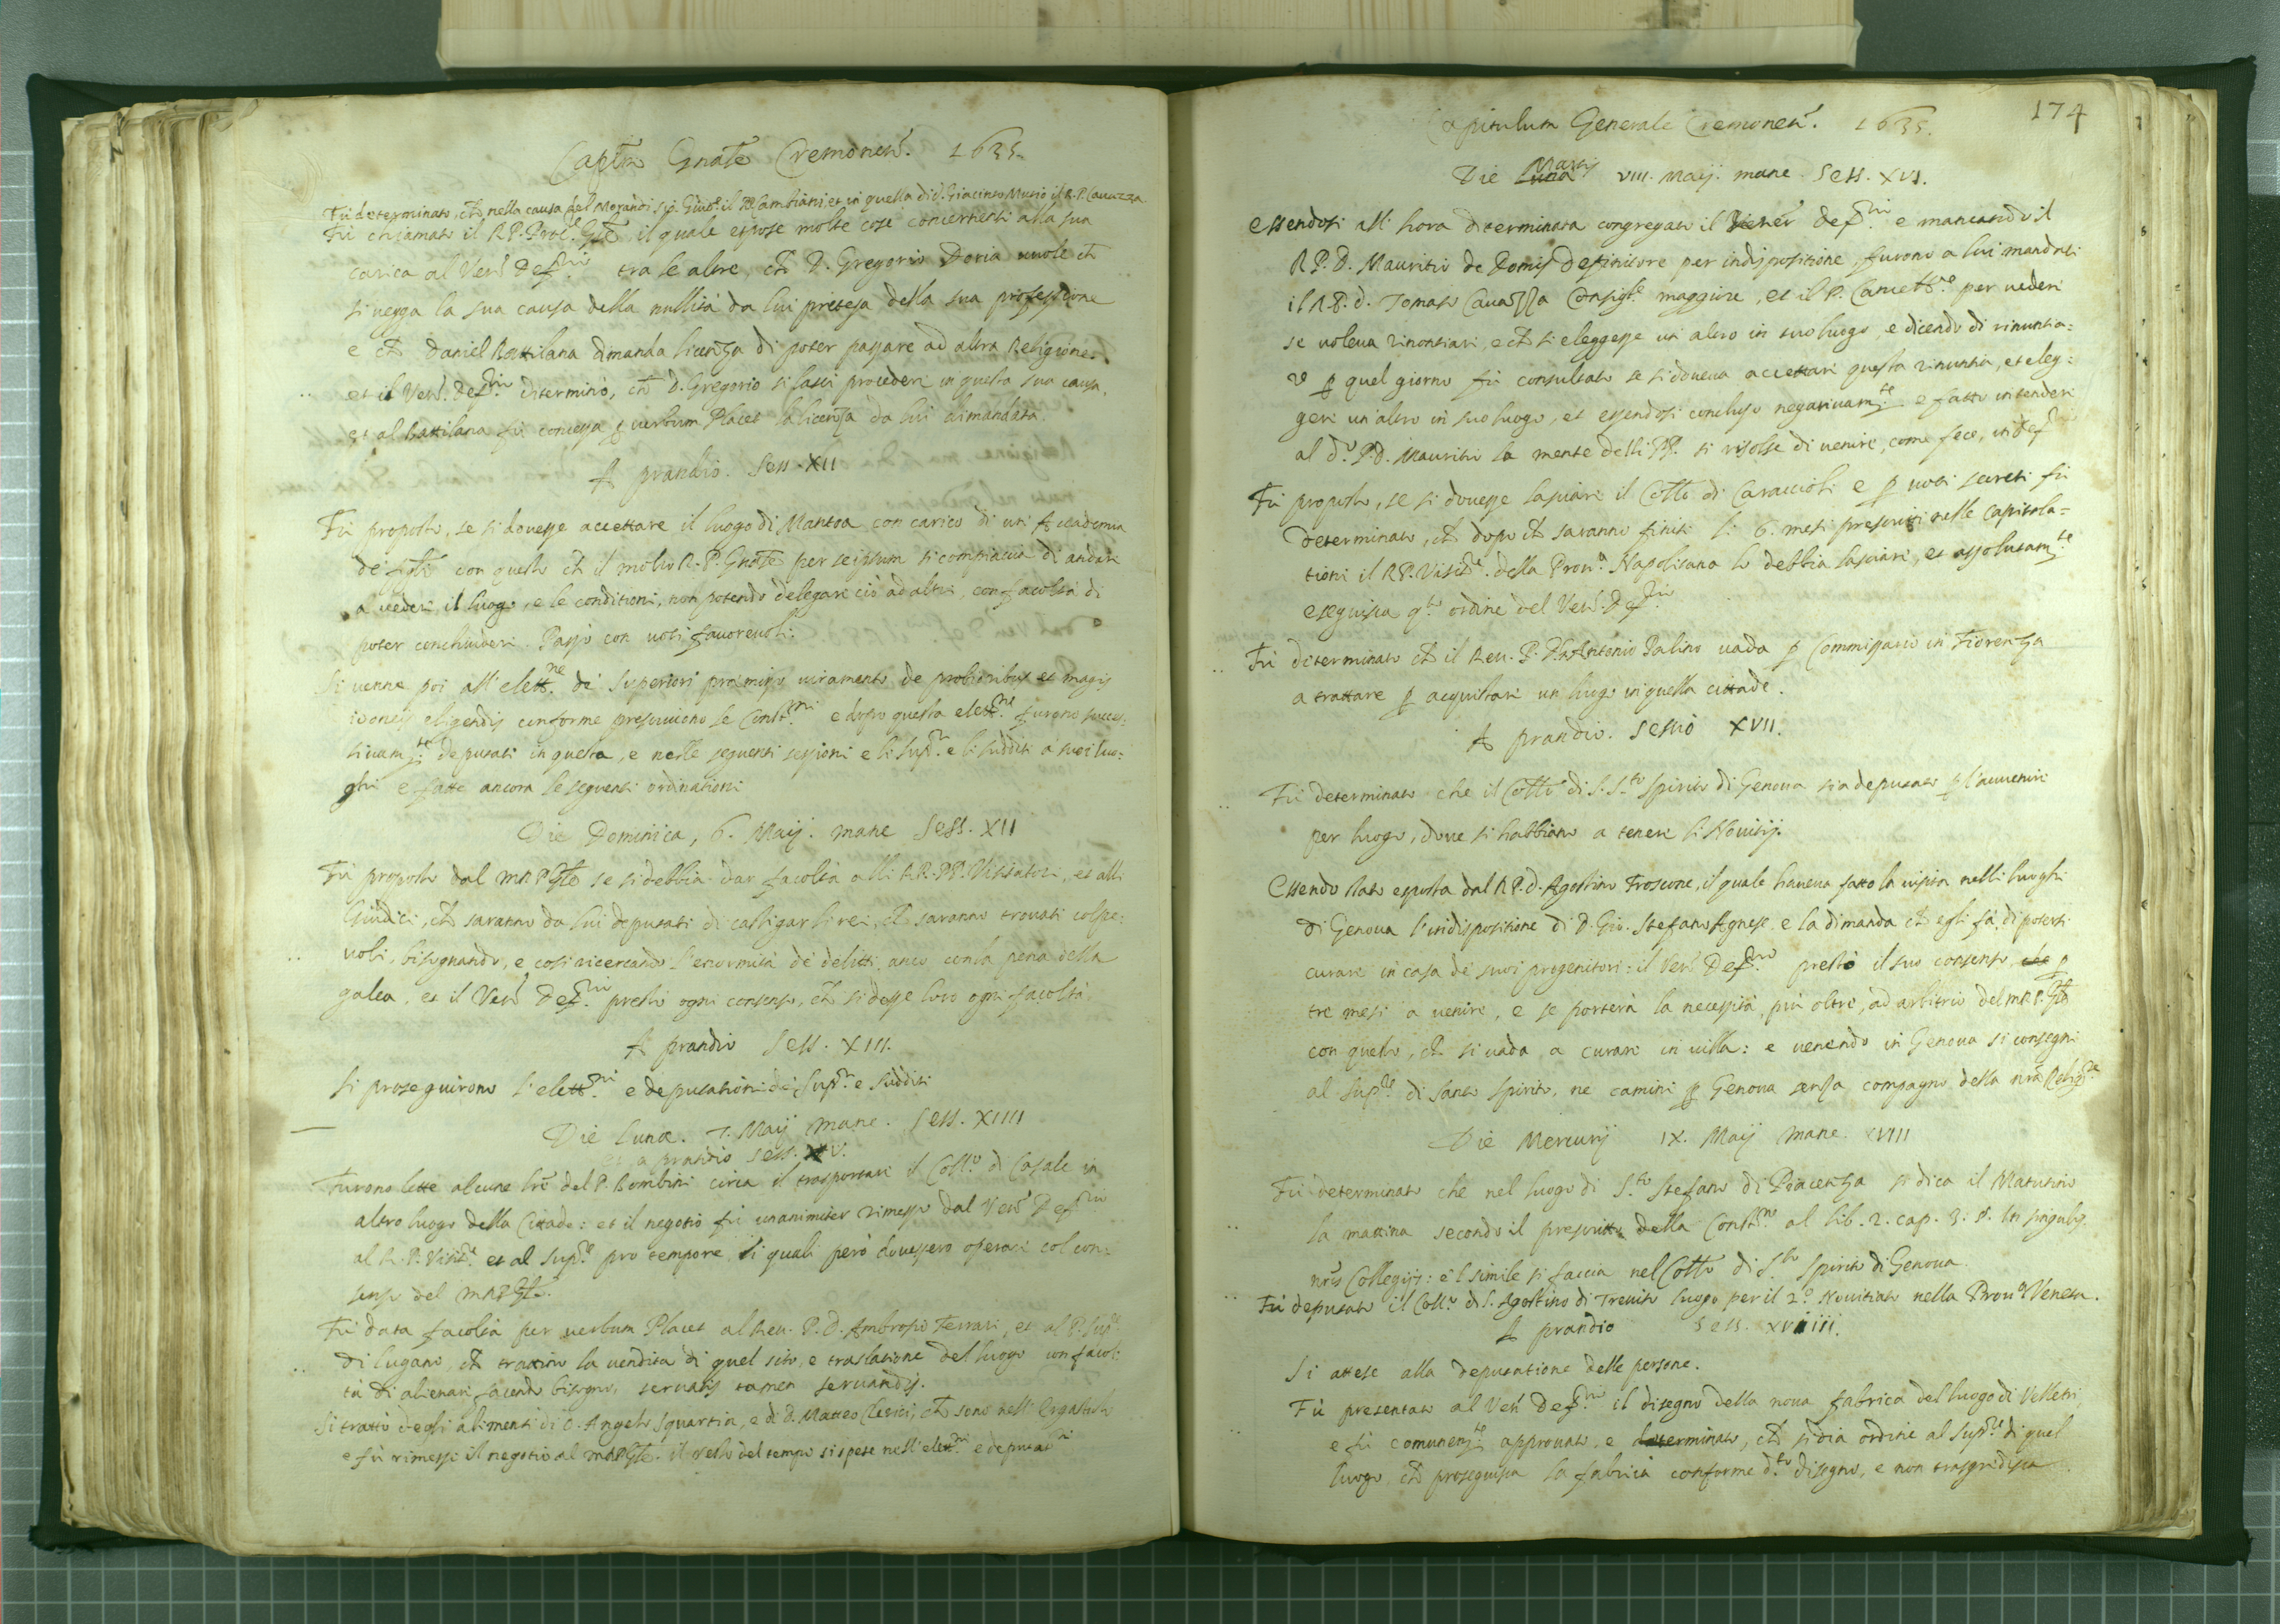 Capitm Gnale Cremonens. 1635.
Fù determinato, ch nella causa del Morandi sij Giud.e il Cambiani, et in quella di d. Giacinto Murio il R.P. Cauazza.
Fù chiamato il R.P. Proc. Gnle il quale espose molte cose concernenti alla sua
carica al Ven. Deff.rio tra le altre, ch D. Gregorio Doria uuole ch
si uegga la sua causa della nullità da lui pretesa della sua professione
e ch Daniel Battilana dimanda licenza di poter passare ad altra Religione.
et il Ven. Deff.rio determinò, ch D. Gregorio si lasci procedere in questa sua causa,
et al Battilana fù concessa p uerbum Placet la licenza da lui dimandata.
A prandio. Sess. XII
Fù proposto, se si douesse accettare il luogo di Mantoa con carico di un Accademia
de figli con questo ch il molto R.P. Gnale per se ipsum si compiaccia di andare
a uedere il luogo, e le conditioni, non potendo delegare ciò ad altri, con facoltà di
poter conchiudere. Passò con uoti fauoreuoli.
Si uenne poi all' elett.ne de Superiori premisso iuramento de probioribus et magis
idoneis eligendis conforme prescriuono le Const.ni e dopo questa elett.ne furono succes-
siuam.te deputati in questa, e nelle seguenti sessioni e li Sup.ri e li sudditi a suoi luo-
ghi e fatte ancora le seguenti ordinationi
Die Dominica, 6. Maij. mane Sess. XII
Fù proposto dal M.R.P. Gnle se si debbia dar facoltà alli RR.PP. Visitatori, et alli
Giudici, ch saranno da lui deputati di castigar li rei, ch saranno trouati colpe-
uoli, bisognando, e così ricercando l'enormità de delitti anco con la pena della
galea, et il Ven. Deff.rio prestò ogni consenso, ch si desse loro ogni facoltà.
A prandio Sess. XIII.
Si proseguirono l'elett.ni e deputationi de Sup.ri e sudditi
Die Lunæ. 7. Maij mane. Sess. XIIII
et a prandio sess. XV.
Furono lette alcune lre del P. Bombini circa il trasportare il Coll.o di Casale in
altro luogo della Cittade: et il negotio fù unanimiter rimesso dal Ven. Deff.rio
al R.P. Visit.re et al Sup.re pro tempore li quali però douessero operare col con-
senso del M.R.P. Gnle.
Fù data facoltà per uerbum Placet al Reu. P.D. Ambrosio Ferrari, et al P. Sup.re
di Lugano, ch trattino la uendita di quel sito, e traslatione del luogo con facol-
tà di alienare facendo bisogno, seruatis tamen seruandis.
Si trattò degli alimenti di D. Angelo Squartin, e di D. Matteo Clerici, ch sono nell' Ergastolo
e fù rimesso il negotio al M.R.P. Gnle. il resto del tempo si spese nell' elett.ni e deputat.ni
174
Capitulum Generale Cremonens. 1635.
Die Luna Martis VIII. Maij. mane Sess. XVI.
Essendosi all' hora determinata congregato il Vener. Deff.rio e mancando il
R.P.D. Mauritio de Domis Definitore per indispositione, furono a lui mandati
il R.P.D. Tomaso Cauazza Consigl.re maggiore, et il P. Cancell.re per uedere
se uoleua rinontiare, e ch si eleggesse un altro in suo luogo e dicendo di rinuntia-
re p quel giorno fù consultato se si doueua accettare questa rinuntia, et eleg-
gere un'altro in suo luogo, et essendosi concluso negatiuam.te e fatto intendere
al d.o P.D. Mauritio la mente delli PP. si risolse di uenire, come fece, in deff.
Fù proposto, se si douesse lasciare il Coll.o di Caraccioli e p uoti secreti fù
determinato, ch dopo ch saranno finiti li 6. mesi prescritti nelle capitola-
tioni il R.P. Visit.re della Prou.a Napolitana lo debbia lasciare, et assolutam.te
eseguisca q.to ordine del Ven. Deff.rio
Fù determinato ch il Reu. P.D. Antonio Palino uada p Commissario in Fiorenza
a trattare p acquistare un luogo in quella cittade.
A prandio. Sessio XVII.
Fù determinato che il Coll.o di S. S.to Spirito di Genoua sia deputato p l'auuenire
per luogo, doue si habbiano a tenere li Nouitij.
Essendo stata esposta dal R.P.D. Agostino Froscone, il quale haueua fatto la uisita nelli luoghi
di Genoua l'indispositione di D. Gio. Stefano Agnese e la dimanda ch egli fà di potersi
curare in casa de suoi progenitori: il Ven. Deff.rio prestò il suo consenso p
tre mesi à uenire, e se porterà la necessità più oltre, ad arbitrio del M.R.P. Gnle
con questo, ch si uada a curare in uilla: e uenendo in Genoua si consegni
al Sup.re di Santo Spirito, ne camini p Genoua senza compagno della nra Relig.ne
Die Mercurij IX. Maij mane. XVIII
Fù determinato che nel luogo di S.to Stefano di Piacenza si dica il Matutino
la mattina secondo il prescritto della Const.ne al lib. 2. cap. 3. §. In singulis
nris Collegijs: e'l simile si faccia nel Coll.o di S.to Spirito di Genoua.
Fù deputato il Coll.o di S. Agostino di Treuiso luogo per il 2.o Nouitiato nella Prou.a Veneta.
A prandio Sess. XVIIII.
Si attese alla deputatione delle persone.
Fù presentato al Ven. Deff.rio il disegno della noua fabrica del luogo di Velletri,
e fù comunem.te approuato, e determinato, ch si dia ordine al Sup.re di quel
luogo, ch proseguisca la fabrica conforme d.to disegno, e non trasgredisca